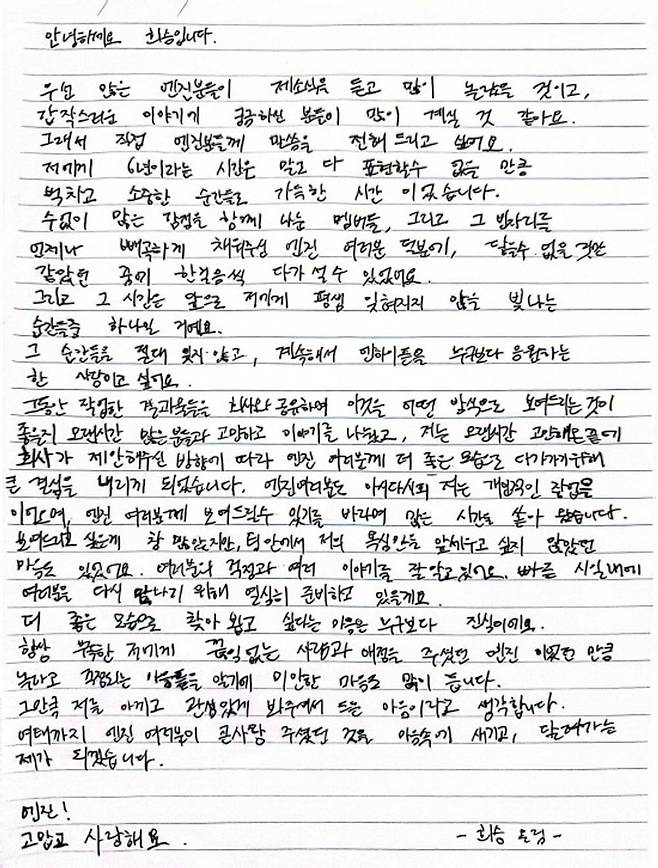 안녕하세요 희승입니다.
우선 많은 엔진분들이 제소식을 듣고 많이 놀랐을 것이고,
갑작스러운 이야기에 궁금하신 분들이 많이 계실 것 같아요.
그래서 직접 엔진분들께 말씀을 전해 드리고 싶어요.
저에게 6년이라는 시간은 말로 다 표현할수 없을 만큼
벅차고 소중한 순간들로 가득한 시간 이었습니다.
수없이 많은 감정을 함께 나눈 멤버들, 그리고 그 빈자리를
언제나 빼곡하게 채워주신 엔진 여러분 덕분에, 닿을수 없을 것만
같았던 꿈에 한걸음씩 다가 설 수 있었어요.
그리고 그 시간은 앞으로 저에게 평생 잊혀지지 않을 빛나는
순간들중 하나일 거예요.
그 순간들을 절대 잊지 않고, 계속해서 엔하이픈을 누구보다 응원하는
한 사람이고 싶어요.
그동안 작업한 결과물들을 회사와 공유하며 이것을 어떤 방식으로 보여드리는것이
좋을지 오랜시간 많은 분들과 고민하고 이야기를 나눴고, 저는 오랜시간 고민해온 끝에
회사가 제안해주신 방향에 따라 엔진 여러분께 더 좋은 모습으로 다가가기위해
큰 결심을 내리게 되었습니다. 엔진여러분도 아시다시피 저는 개인적인 작업을
이어오며, 엔진 여러분께 보여드릴수 있기를 바라며 많은 시간을 쏟아 왔습니다.
보여드리고 싶은게 참 많았지만, 팀 안에서 저의 욕심만을 앞세우고 싶지 않았던
마음도 있었어요. 여러분의 걱정과 여러 이야기를 잘 알고 있어요. 빠른 시일내에
여러분을 다시 만나기 위해 열심히 준비하고 있을게요.
더 좋은 모습으로 찾아 뵙고 싶다는 마음은 누구보다 진심이에요.
항상 부족한 저에게 끊임없는 사랑과 애정을 주셨던 엔진 이었던 만큼
놀라고 걱정되는 마음들을 알기에 미안한 마음도 많이 듭니다.
그만큼 저를 아끼고 관심있게 봐주셔서 드는 마음이라고 생각합니다.
여태까지 엔진 여러분이 큰사랑 주셨던 것을 마음속에 새기고, 달려가는
제가 되겠습니다.
엔진!
고맙고 사랑해요.
- 희승 올림 -